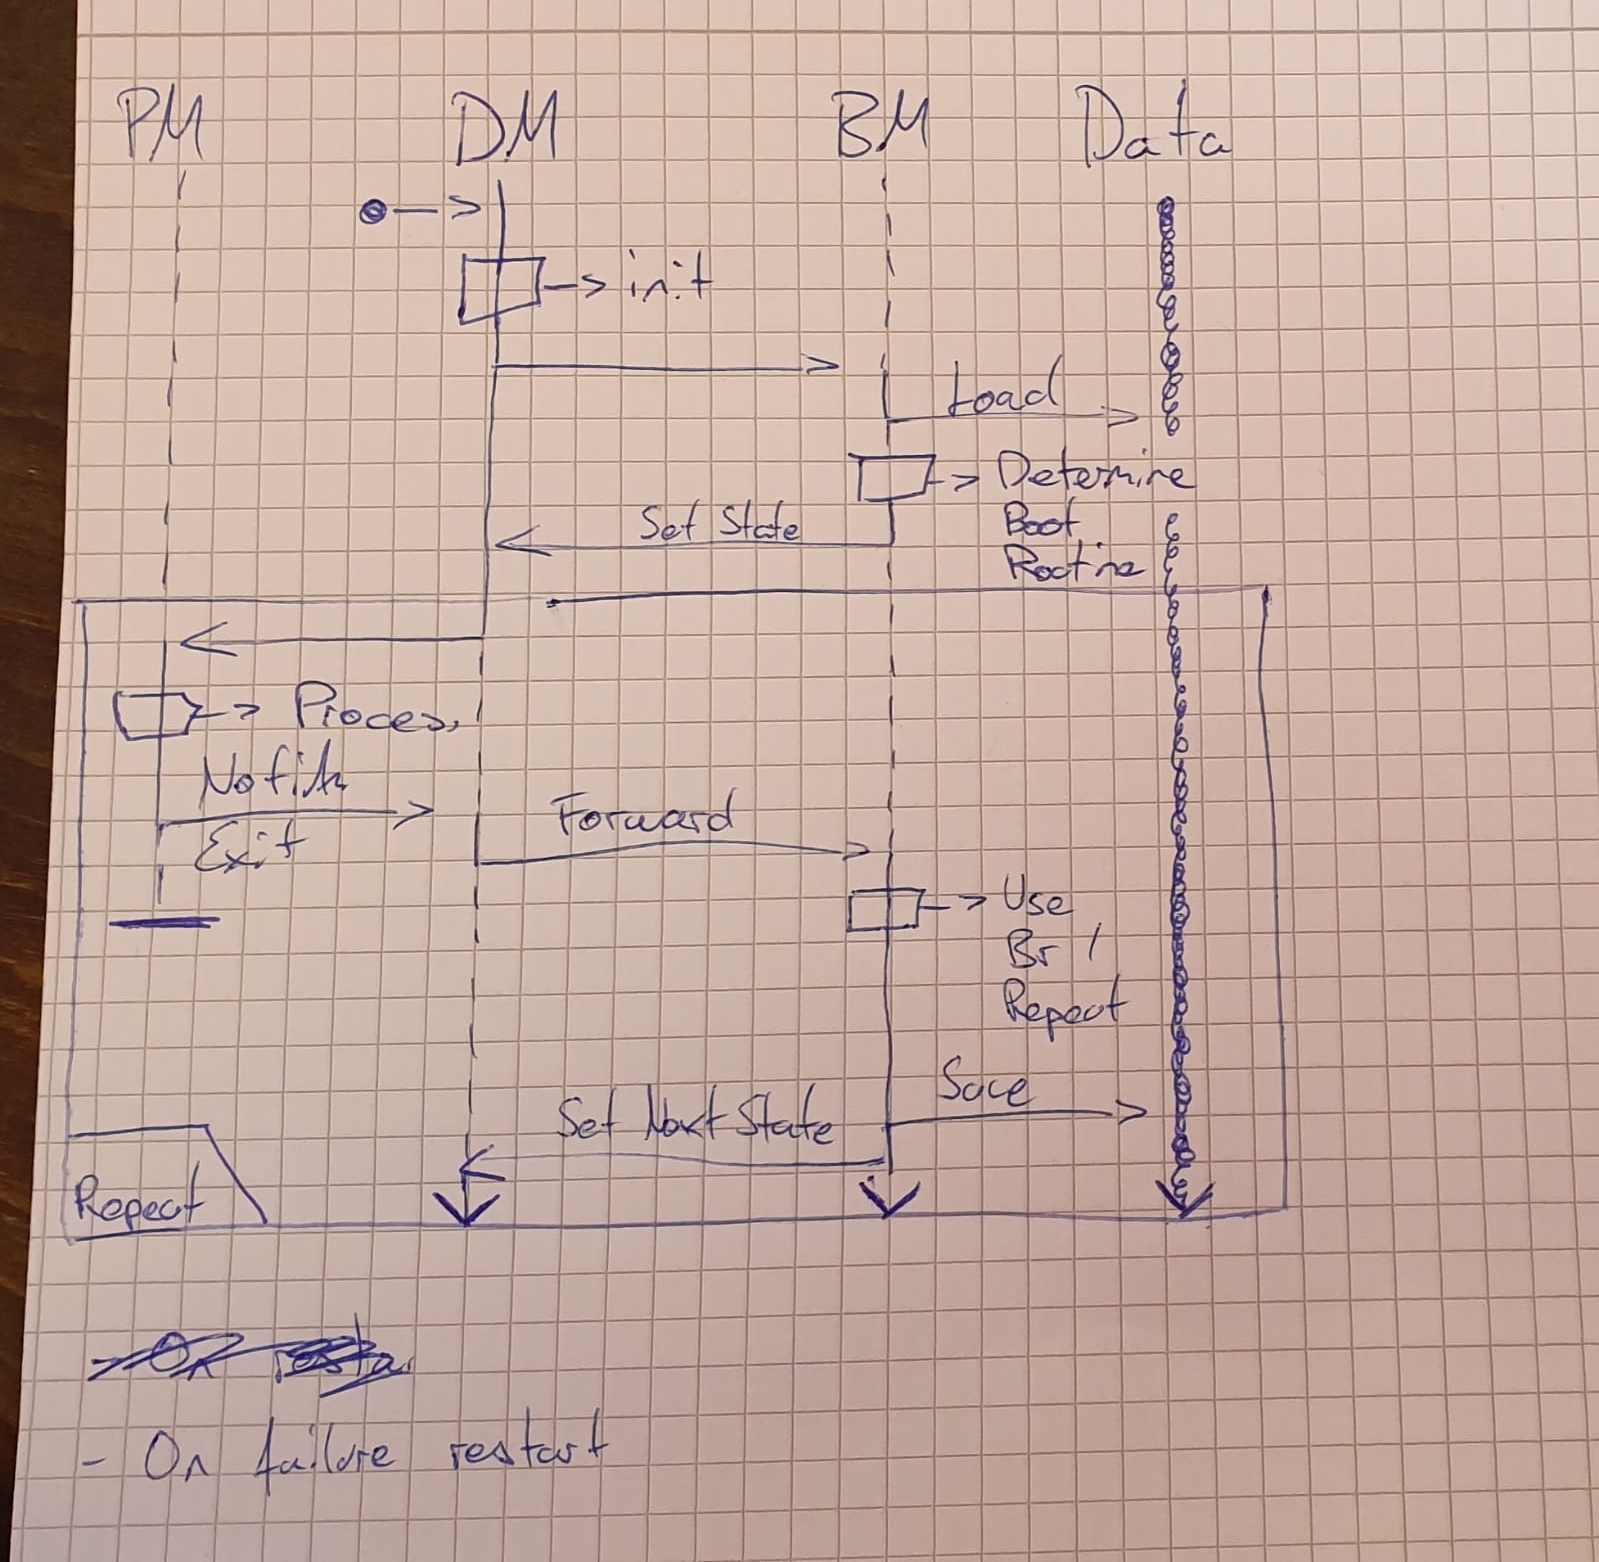 PM DM BM Data
init
Load
Determine
Boot
Routine
Set State
Process
Exit
Forward
Use
Br /
Repeat
Save
Set Next State
Repeat
- On failure restart